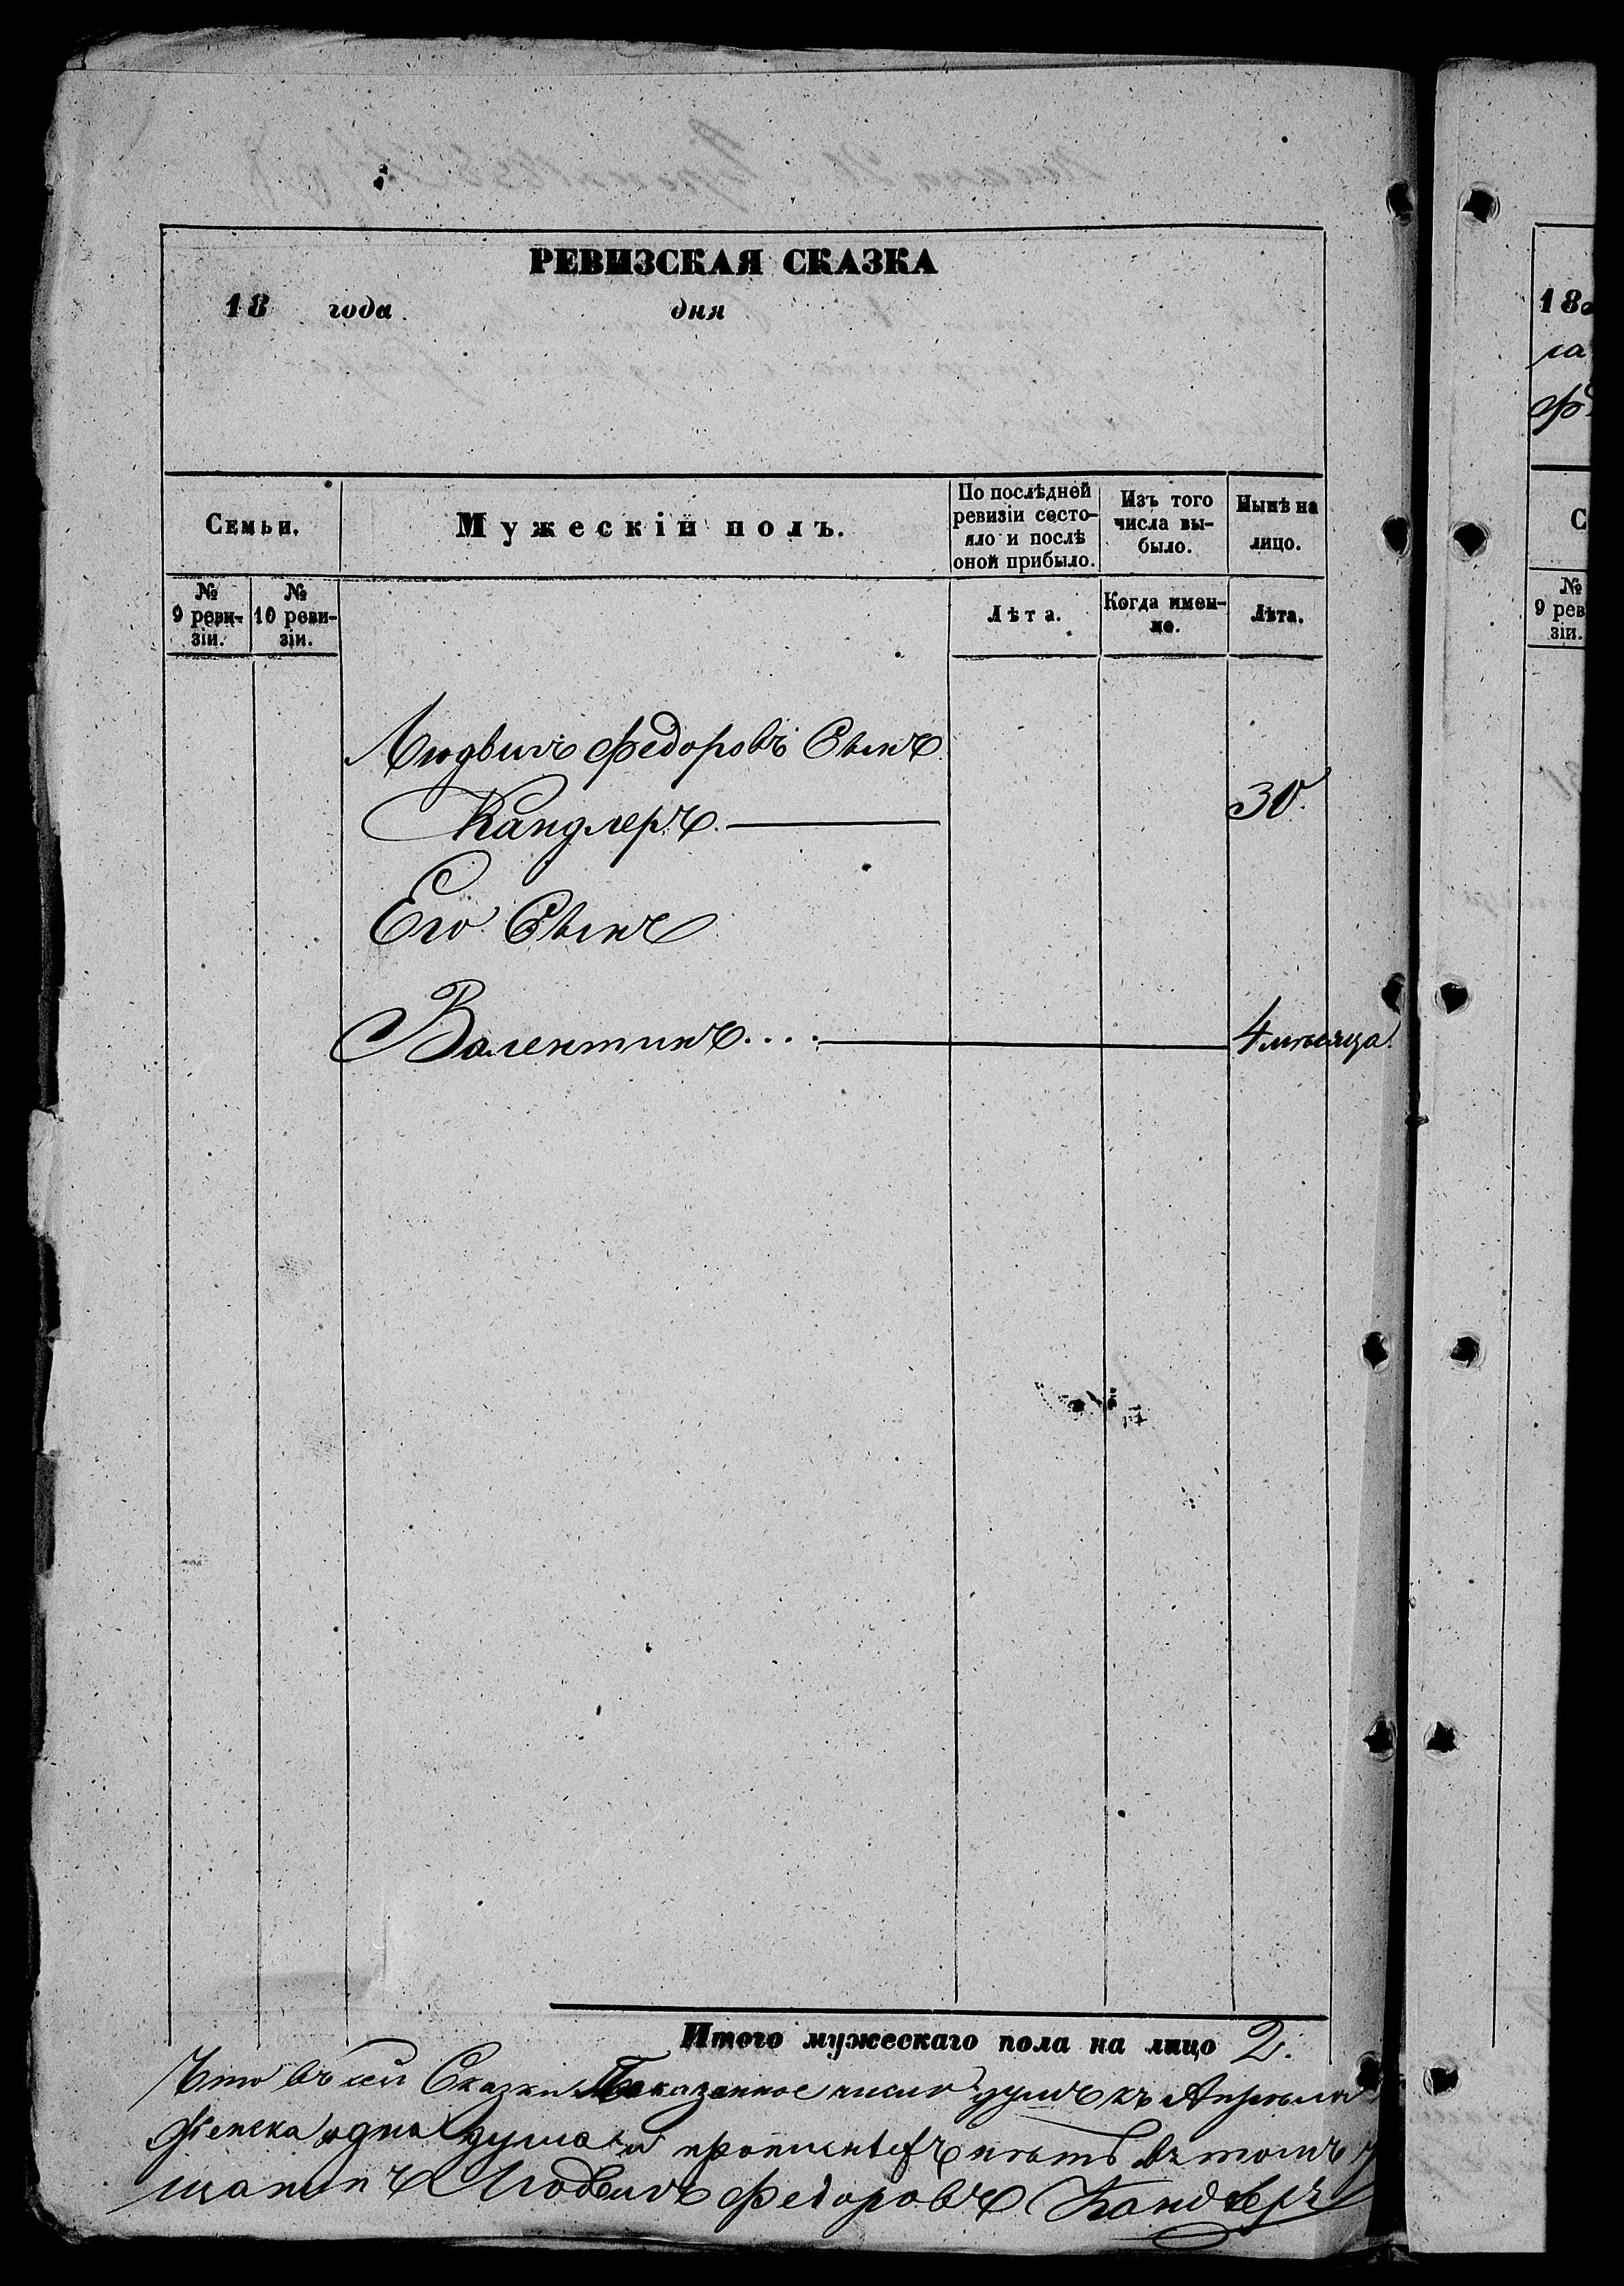 РЕВИЗСКАЯ СКАЗКА
18 года дня
Семьи.
Мужескій полъ.
По послѣдней
ревизіи состо-
яло и послѣ
оной прибыло.
Изъ того
числа вы-
было.
Нынѣ на
лицо.
№
9 реви-
зіи.
№
10 реви-
зіи.
Лѣта.
Когда имен-
но.
Лѣта.
Людвигъ Федоровъ Сынъ
Кандлеръ.
30.
Его Сынъ
Валентинъ....
4 мѣсяца.
Итого мужескаго пола на лицо 2.
Что въ сей Сказки Показанное число душъ къ Апрѣля
женска одна душа и прописныхъ нѣтъ въ томъ
щанинъ Людвигъ Федоровъ Кандлеръ
18
га
С
№
9 рев
зіи.